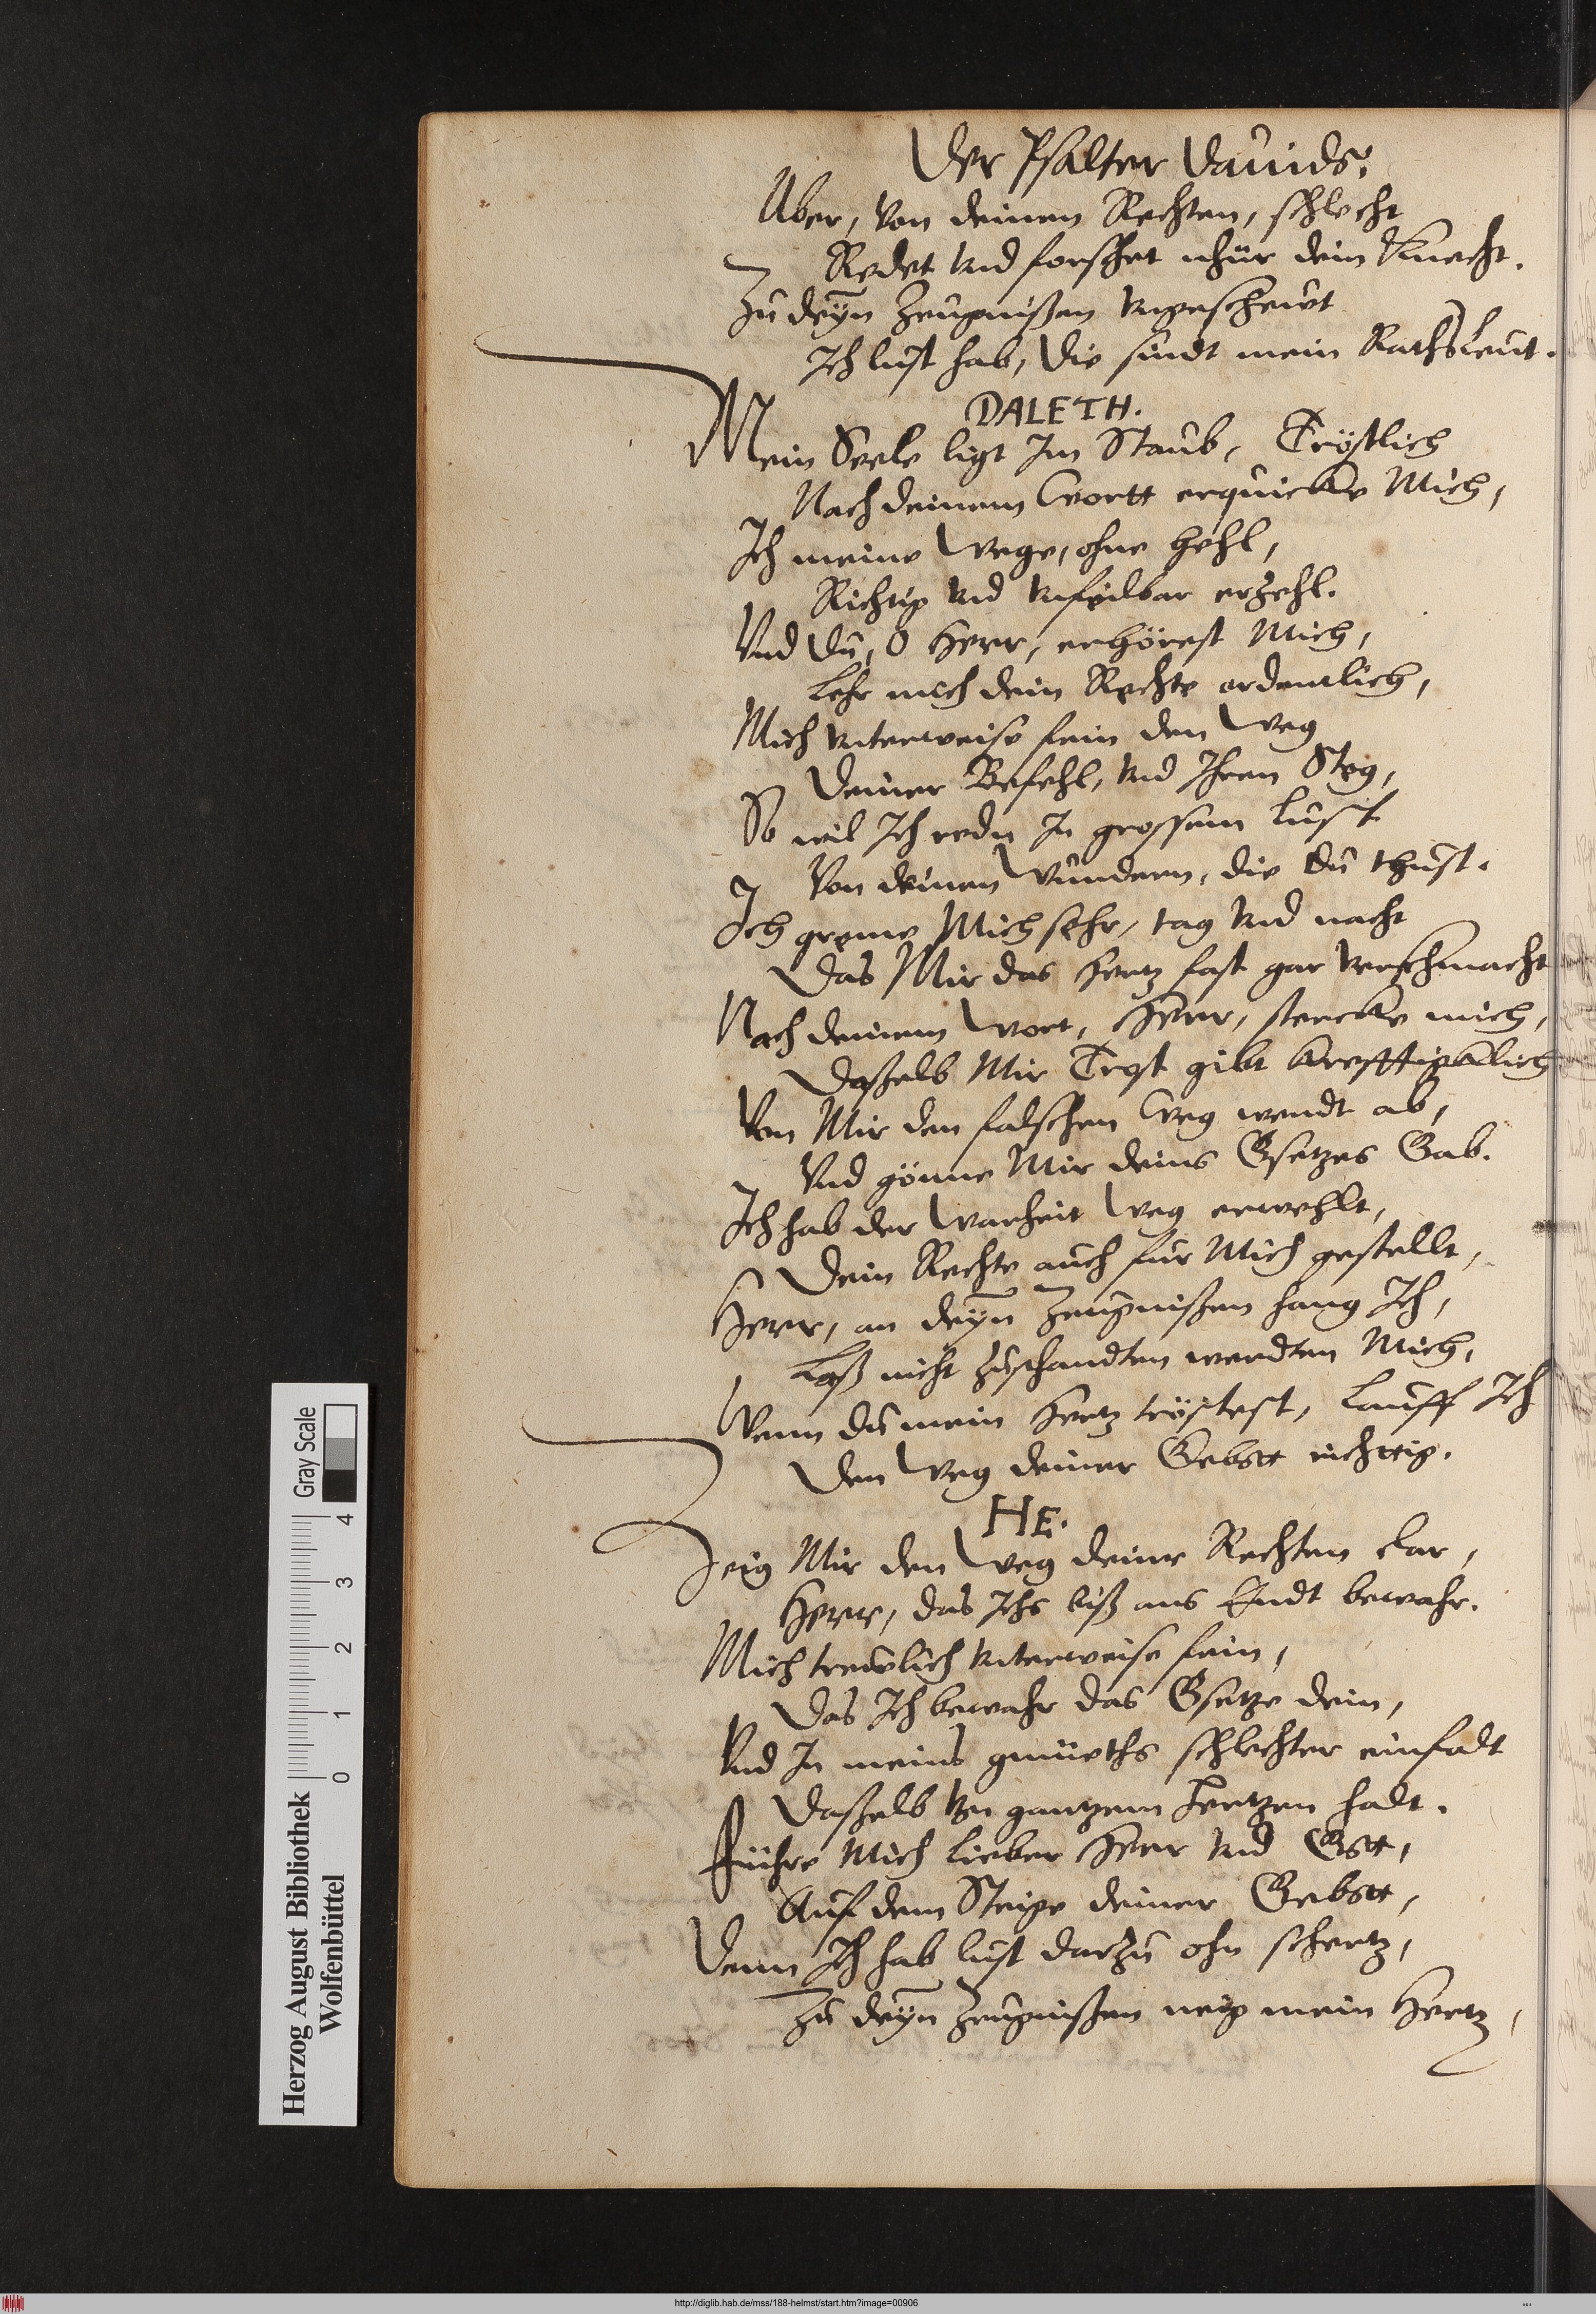 Der Psalter Dauids.
Aber, Von deinen Rechten, schlecht
Redet Vnd forschet nhür dein Knecht.
Zu deyn Zeugnißen Vngeschewt
Ich lust hab, Die sindt mein RathsLeut.
DALETH.
Mein Seele ligt Im Staub, Tröstlich
Nach deinem Wortt erquicke Mich,
Ich meine Wege, ohne hehl,
Richtig Vnd Vnfeilbar erzehl.
Vnd Du, O Herr, erhörest Mich,
Lehr mich dein Rechte ordentlich,
Mich Vnterweise fein den Weg
Deiner Befehl, Vnd Ihren Steg,
So wil Ich redn In grossem Lust
Von deinen Wundern, die Du thust.
Ich greme Mich sehr, tag Vnd nacht
Das Mir das Hertz fast gar Verschmacht
Nach deinem Wort, Herr, stercke mich,
Daßelb Mir Trost gibt krefftigklich
Von Mir den falschen Weg wendt ab,
Vnd gönne Mir deins Gsetzes Gab.
Ich hab der Warheit Weg erwehlt,
Dein Rechte auch für Mich gestellt,
Herr, an deyn Zeugnißen hang Ich,
Laß nicht zuschandten werdten Mich,
Wenn du mein Hertz tröstest, Lauff Ich
Den Weg deiner Gebott richttig.
HE.
Zeig Mir den Weg deiner Rechten klar,
Herr, das Ichs biß ans Endt bewahr.
Mich trewlich Vnterweise fein,
Das Ich bewahr das Gsetze dein,
Vnd In meins gmüeths schlechter einfalt
Daßelb Von gantzem Hertzen halt.
Führe Mich lieber Herr Vnd Gott,
Auf dem Steige deiner Gebott,
Denn Ich hab lust darzu ohn schertz,
Zu deyn Zeugnißen neig mein Hertz,
Herzog August Bibliothek
Wolfenbüttel
0 1 2 3 4
Gray Scale
http://diglib.hab.de/mss/188-helmst/start.htm?image=00906